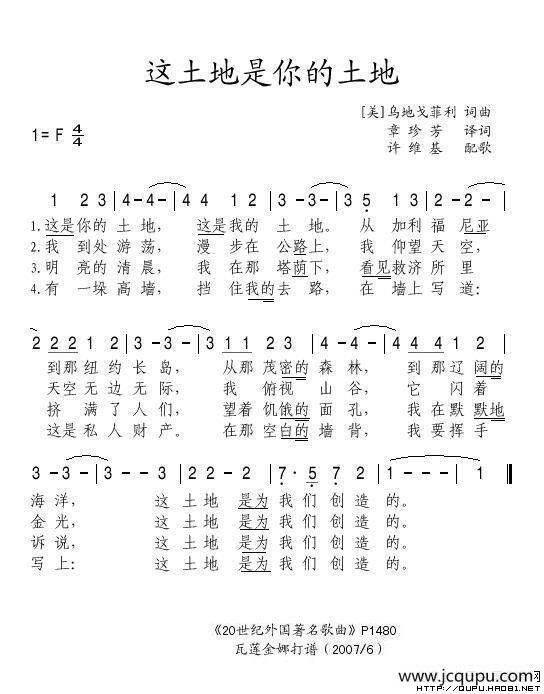 这土地是你的土地
[美]乌地戈菲利 词曲
1= F 4/4
章珍芳 译词
许维基 配歌
1 2 3 | 4 - 4 - | 4 4 1 2 | 3 - 3 - | 3 5 1 3 | 2 - 2 -
1.这是你的 土 地, 这是我的 土 地。 从 加利福 尼亚
2.我 到处游荡, 漫 步在公路上, 我 仰望天空,
3.明 亮的清晨, 我 在那 塔荫下, 看见救济所里
4.有 一垛高墙, 挡 住我的去路, 在 墙上写道:
2 2 2 2 1 2 | 3 - 3 - | 3 1 1 2 3 | 4 - 4 - | 4 4 4 1 2 |
到那纽约长岛, 从那茂密的森林, 到那辽阔的
天空无边无际, 我 俯视 山谷, 它 闪着
挤 满了人们, 望着饥饿的面孔, 我在默默地
这是私人财产。 在那空白的墙背, 我要挥手
3 - 3 - | 3 1 2 3 | 2 2 - 2 | 7· 5 7 2 | 1 - 1 - | 1
海洋, 这土地是为我们创造的。
金光, 这土地是为我们创造的。
诉说, 这土地是为我们创造的。
写上: 这土地是为我们创造的。
《20世纪外国著名歌曲》P1480
瓦莲金娜打谱(2007/6)
www.jcqupu.com
HTTP://QUPU.HAO81.NET